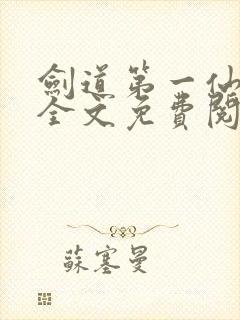 劍道第一仙
全文免費閱
蘇塞曼